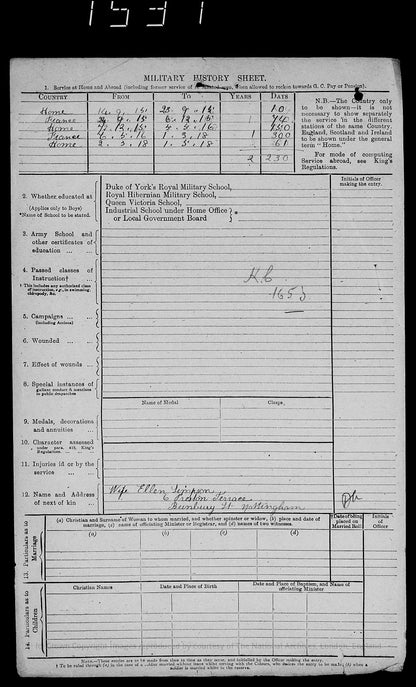 1531
MILITARY HISTORY SHEET.
1. Service at Home and Abroad (including former service of re-enlisted men, when allowed to reckon towards G. C. Pay or Pension).
COUNTRY FROM TO YEARS DAYS
Home 14. 9. 15 23. 9. 15 10
France 9. 15 6. 12. 15
Home 7. 12. 15 5. 16 150
France 5. 16 1. 3. 18 1 300
Home 2. 3. 18 1. 5. 18 61
2 230
N.B.—The Country only to be shown—it is not necessary to show separately the service in the different stations of the same Country. England, Scotland and Ireland to be shown under the general term "Home."
For mode of computing Service abroad, see King's Regulations.
Initials of Officer making the entry.
2. Whether educated at
(Applies only to Boys)
*Name of School to be stated.
Duke of York's Royal Military School,
Royal Hibernian Military School,
Queen Victoria School,
Industrial School under Home Office
or Local Government Board
3. Army School and other certificates of education ... ...
4. Passed classes of Instruction† ...
† This includes any authorised class of instruction, e.g., in swimming, chiropody, &c.
5. Campaigns ... ...
(Including Actions)
6. Wounded ... ...
7. Effect of wounds ...
8. Special instances of gallant conduct & mentions in public despatches
Name of Medal Clasps.
9. Medals, decorations and annuities ...
10. Character assessed under para. 418, King's Regulations. ... ...
11. Injuries in or by the service ... ...
12. Name and Address of next of kin ...
Wife Ellen Simpson
6 Terrace
Bunbury St Nottingham
13. Particulars as to Marriage
(a) Christian and Surname of Woman to whom married, and whether spinster or widow, (b) place and date of marriage, (c) name of officiating Minister or Registrar, and (d) names of two witnesses.
(a) (b) (c) (d)
Date of being placed on Married Roll
Initials of Officer
14. Particulars as to Children
Christian Names Date and Place of Birth Date and Place of Baptism, and Name of officiating Minister
NOTE.—These entries are to be made from time to time as they occur, and initialled by the Officer making the entry.